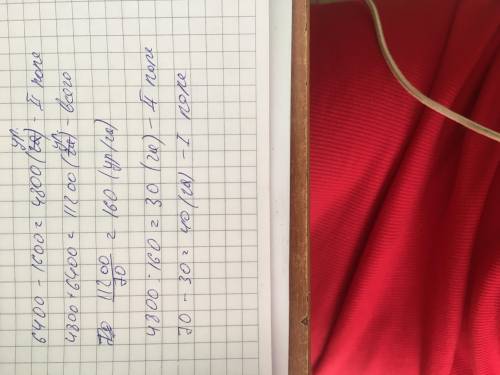 6400 - 1600 = 4800 (ур.) - II поле
4800 + 6400 = 11200 (ур.) - всего
11200/70 = 160 (ур/га)
4800 : 160 = 30 (га) - II поле
70 - 30 = 40 (га) - I поле